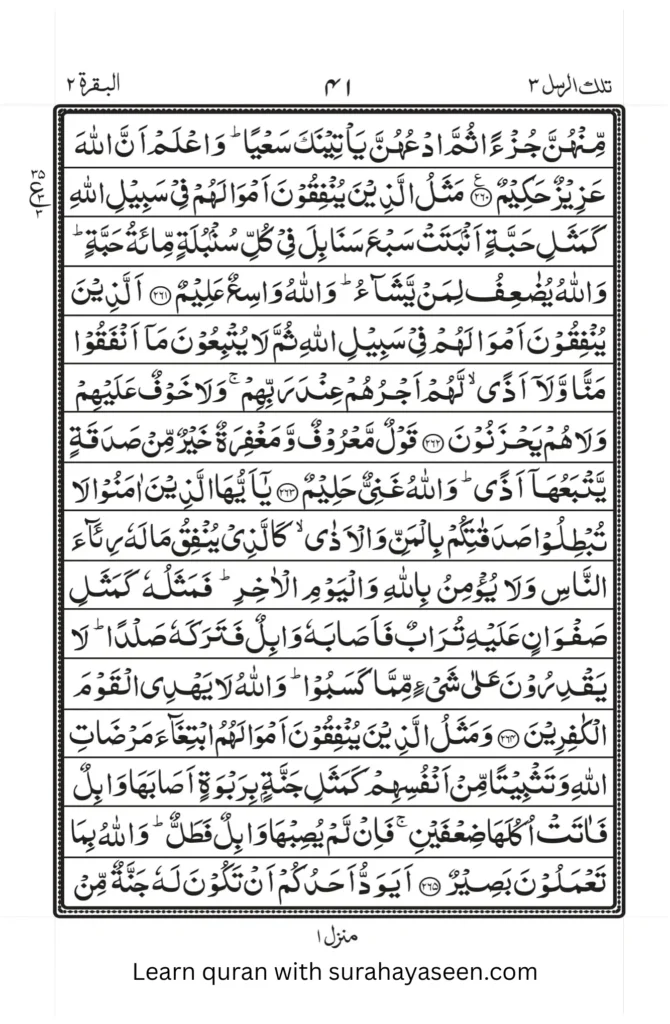 تلك الرسل ٣
٤١
البقرة ٢
مِّنْهُنَّ جُزْءًا ثُمَّ ادْعُهُنَّ يَأْتِيْنَكَ سَعْيًا ؕ وَاعْلَمْ اَنَّ اللّٰهَ
عَزِيْزٌ حَكِيْمٌ ﴿۲۶۰﴾ ع مَثَلُ الَّذِيْنَ يُنْفِقُوْنَ اَمْوَالَهُمْ فِيْ سَبِيْلِ اللّٰهِ
٣٥
ع
٣
٣
كَمَثَلِ حَبَّةٍ اَنْۢبَتَتْ سَبْعَ سَنَابِلَ فِيْ كُلِّ سُنْۢبُلَةٍ مِّائَةُ حَبَّةٍ ؕ
وَاللّٰهُ يُضٰعِفُ لِمَنْ يَّشَآءُ ؕ وَاللّٰهُ وَاسِعٌ عَلِيْمٌ ﴿۲۶۱﴾ اَلَّذِيْنَ
يُنْفِقُوْنَ اَمْوَالَهُمْ فِيْ سَبِيْلِ اللّٰهِ ثُمَّ لَا يُتْبِعُوْنَ مَاۤ اَنْفَقُوْا
مَنًّا وَّلَاۤ اَذًى ۙ لَّهُمْ اَجْرُهُمْ عِنْدَ رَبِّهِمْ ۚ وَلَا خَوْفٌ عَلَيْهِمْ
وَلَا هُمْ يَحْزَنُوْنَ ﴿۲۶۲﴾ قَوْلٌ مَّعْرُوْفٌ وَّمَغْفِرَةٌ خَيْرٌ مِّنْ صَدَقَةٍ
يَّتْبَعُهَاۤ اَذًى ؕ وَاللّٰهُ غَنِيٌّ حَلِيْمٌ ﴿۲۶۳﴾ يٰۤاَيُّهَا الَّذِيْنَ اٰمَنُوْا لَا
تُبْطِلُوْا صَدَقٰتِكُمْ بِالْمَنِّ وَالْاَذٰى ۙ كَالَّذِيْ يُنْفِقُ مَالَهٗ رِئَآءَ
النَّاسِ وَلَا يُؤْمِنُ بِاللّٰهِ وَالْيَوْمِ الْاٰخِرِ ؕ فَمَثَلُهٗ كَمَثَلِ
صَفْوَانٍ عَلَيْهِ تُرَابٌ فَاَصَابَهٗ وَابِلٌ فَتَرَكَهٗ صَلْدًا ؕ لَا
يَقْدِرُوْنَ عَلٰى شَيْءٍ مِّمَّا كَسَبُوْا ؕ وَاللّٰهُ لَا يَهْدِي الْقَوْمَ
الْكٰفِرِيْنَ ﴿۲۶۴﴾ وَمَثَلُ الَّذِيْنَ يُنْفِقُوْنَ اَمْوَالَهُمُ ابْتِغَآءَ مَرْضَاتِ
اللّٰهِ وَتَثْبِيْتًا مِّنْ اَنْفُسِهِمْ كَمَثَلِ جَنَّةٍۭ بِرَبْوَةٍ اَصَابَهَا وَابِلٌ
فَاٰتَتْ اُكُلَهَا ضِعْفَيْنِ ۚ فَاِنْ لَّمْ يُصِبْهَا وَابِلٌ فَطَلٌّ ؕ وَاللّٰهُ بِمَا
تَعْمَلُوْنَ بَصِيْرٌ ﴿۲۶۵﴾ اَيَوَدُّ اَحَدُكُمْ اَنْ تَكُوْنَ لَهٗ جَنَّةٌ مِّنْ
منزل ١
Learn quran with surahayaseen.com